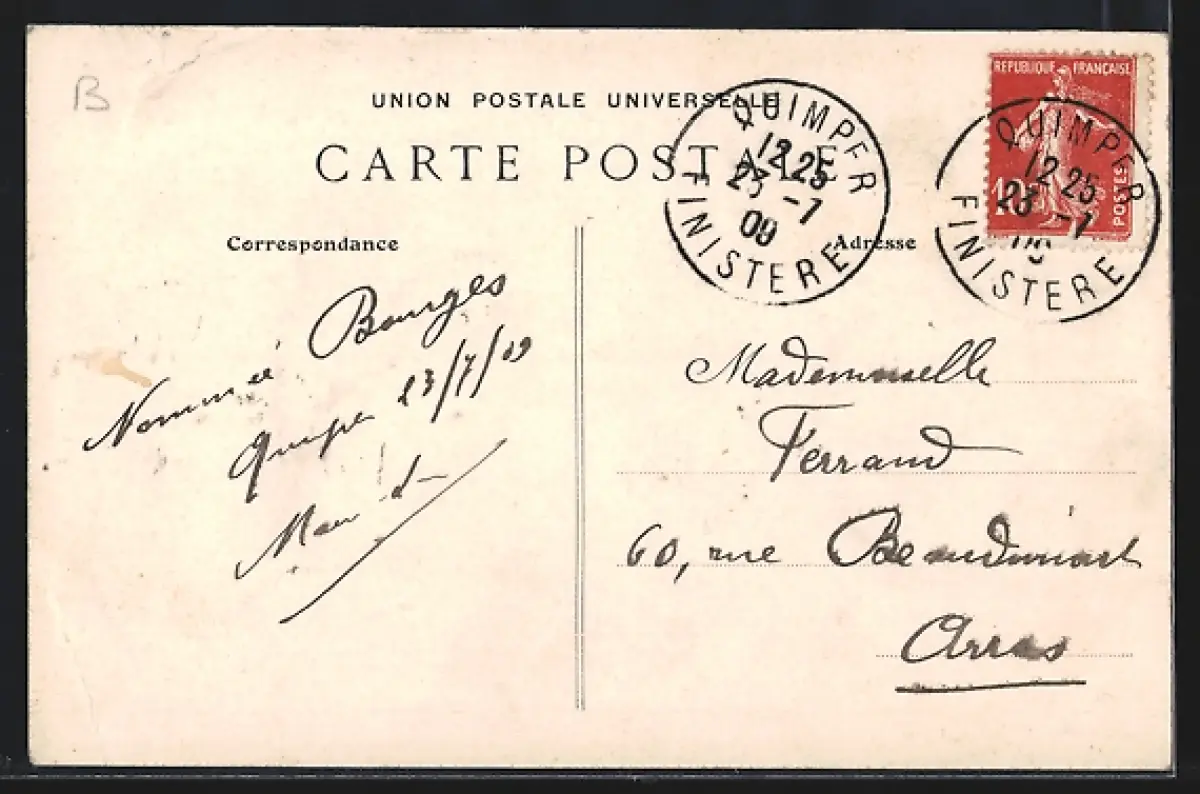 B
UNION POSTALE UNIVERSELLE
CARTE POSTALE
REPUBLIQUE FRANÇAISE
10c
POSTES
QUIMPER
12 25
23 -7
09
FINISTERE
QUIMPER
12 25
23 -7
09
FINISTERE
Correspondance
Nommé Bourges
Quimper 23/7/09
Adresse
Mademoiselle
Ferrand
60, rue Beaudimont
Arras